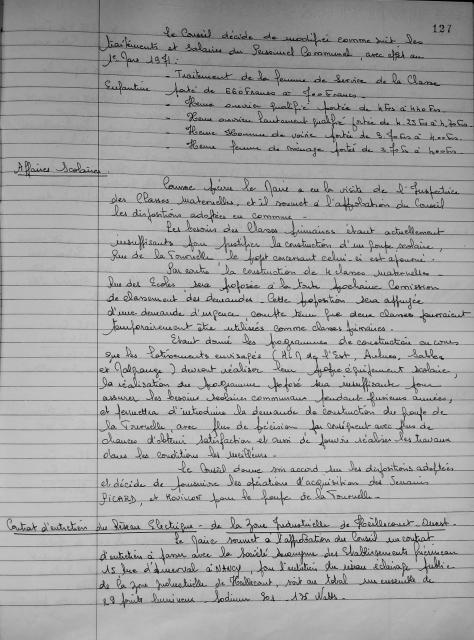 127
Le Conseil décide de modifier comme suit les
traitements et salaires du Personnel Communal, avec effet au
1er Mars 1971 :
- Traitement de la femme de Service de la Classe
Enfantine porté de 660 Francs à 700 Francs.
- Heure ouvrier qualifié portée de 4 Frs à 4.40 Frs.
- Heure ouvrier hautement qualifié portée de 4.25 Frs à 4.70 Frs
- Heure homme de voirie portée de 3.70 Frs à 4.00 Frs.
- Heure femme de ménage portée de 3.70 Frs à 4.00 Frs.
Affaires Scolaires.
le Maire a eu la visite de l'Inspectrice
des Classes Maternelles, et il soumet à l'approbation du Conseil
les dispositions adoptées en commun -
Les besoins en Classes primaires étant actuellement
insuffisants pour justifier la construction d'un groupe scolaire,
Rue de la Tournelle, le projet concernant celui-ci est ajourné.
Par contre la construction de 4 classes maternelles -
Rue des Ecoles sera proposée à la toute prochaine Commission
de classement des demandes. Cette proposition sera appuyée
d'une demande d'urgence, compte tenu que deux classes pourraient
temporairement être utilisées comme classes primaires.
Etant donné les programmes de construction en cours
que les lotissements envisagés (HLM de l'Est,
et ) devront réaliser leur propre équipement scolaire,
la réalisation du programme proposé sera insuffisante pour
assurer les besoins scolaires communaux pendant plusieurs années,
et permettra d'introduire la demande de construction du groupe de
la Tournelle, avec plus de précision, par conséquent avec plus de
chances d'obtenir satisfaction et aussi de pouvoir réaliser les travaux
dans les conditions les meilleures.
Le Conseil donne son accord sur les dispositions adoptées
et décide de poursuivre les opérations d'acquisition des Terrains
PICARD, et pour le groupe de la Tournelle -
Contrat d'entretien du Réseau Electrique - de la Zone Industrielle de Heillecourt - Ouest.
Le Maire soumet à l'approbation du Conseil un contrat
d'entretien à passer avec la Société Anonyme des Etablissements
15 rue d' à NANCY, pour l'entretien du réseau éclairage public
de la Zone Industrielle de Heillecourt, soit au total un ensemble de
29 points lumineux - Sodium 175 Watts -